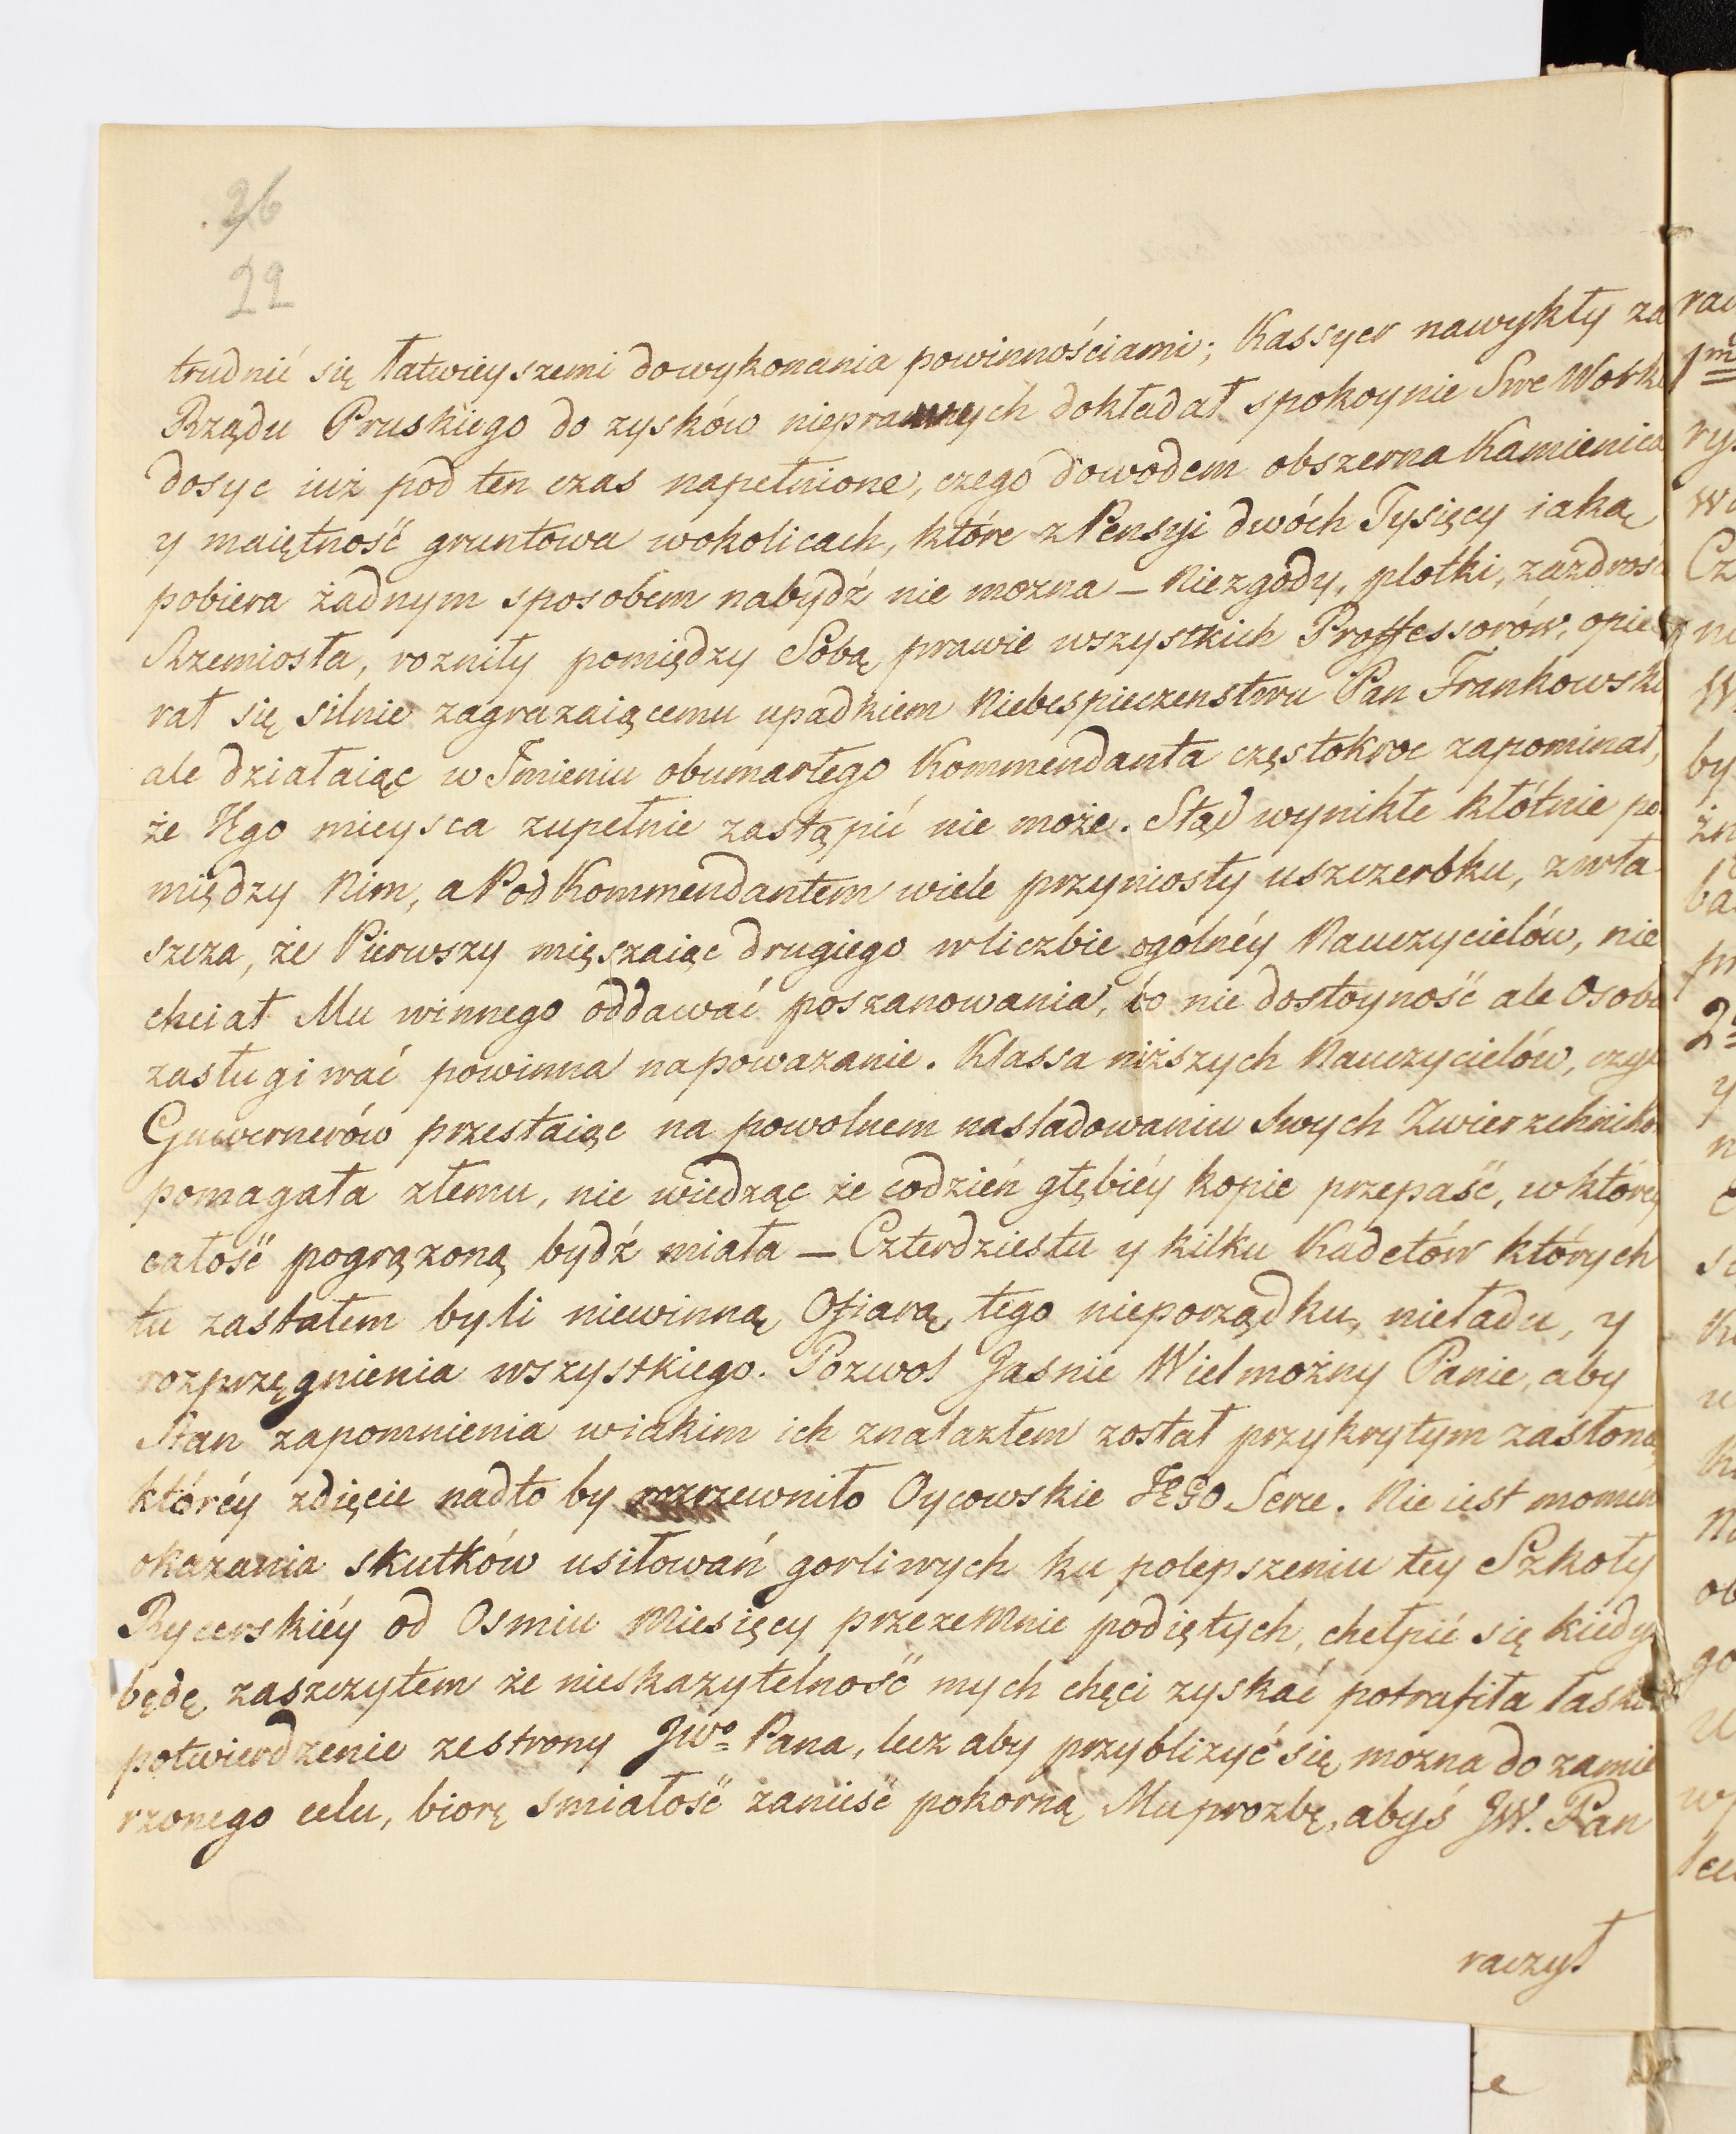 26
22
trudnić się łatwieyszemi dowykonania powinnościami; Kassyer nawykły za
Rządu Pruskiego do zysków nieprawnych dokładał spokoynie Swe Work
dosyc iuż pod ten czas napełnione, czego dowodem obszerna Kamienica
y maiętność gruntowa wokolicach, które z Pensyi dwóch Tysięcy iaką
pobiera żadnym sposobem nabydź nie mozna — Niezgody, plotki, zazdrość
Rzemiosła, rozniły pomiędzy Sobą prawie wszystkich Proffessorów, opie
rał się silnie zagrazaiącemu upadkiem Niebespieczenstwu Pan Frankowski
ale działaiąc w Imieniu obumarłego Kommendanta częstokroc zapominał,
że Jego mieysca zupełnie zastąpić nie może. Stąd wynikłe kłótnie po
między Nim, a Pod Kommendantem wiele przyniosły uszczerbku, zwła
szcza, że Pierwszy mięszaiąc drugiego wliczbie ogólnéy Nauczycielów, nie
chciał Mu winnego oddawać poszanowania, bo nie dostoyność ale Osoba
zasługiwać powinna napowazanie. Klassa niższych Nauczycielów, czyl
Guwernerów przestaiąc na powolnem nasladowaniu Swych Zwierzchników
pomagała złemu, nie wiedząc że codzień głębiéy kopie przepaść, wktórey
całość pogrązoną bydź miała — Czterdziestu y kilku Kadetów których
tu zastałem byli niewinną Ofiarą tego nieporządku, nieładu, y
rozprzęgnienia wszystkiego. Pozwol Jasnie Wielmożny Panie, aby
Stan zapomnienia wiakim ich znalazłem został przykrytym zasłoną
któréy zdięcie nadto by rozrzewniło Oycowskie JEGO Serce. Nie iest momen
okazania skutków usiłowań gorliwych ku polepszeniu tey Szkoły
Rycerskiéy od Osmiu Miesięcy przezemnie podiętych, chełpić się kiedy
będę zaszczytem że nieskazytelność mych chęci zyskać potrafiła łask
potwierdzenie zestrony JWo Pana, lecz aby przyblizyć się mozna do zamie
rzonego celu, biorę smiałość zanieść pokorną Mu prozbę, abyś JW. Pan
raczył